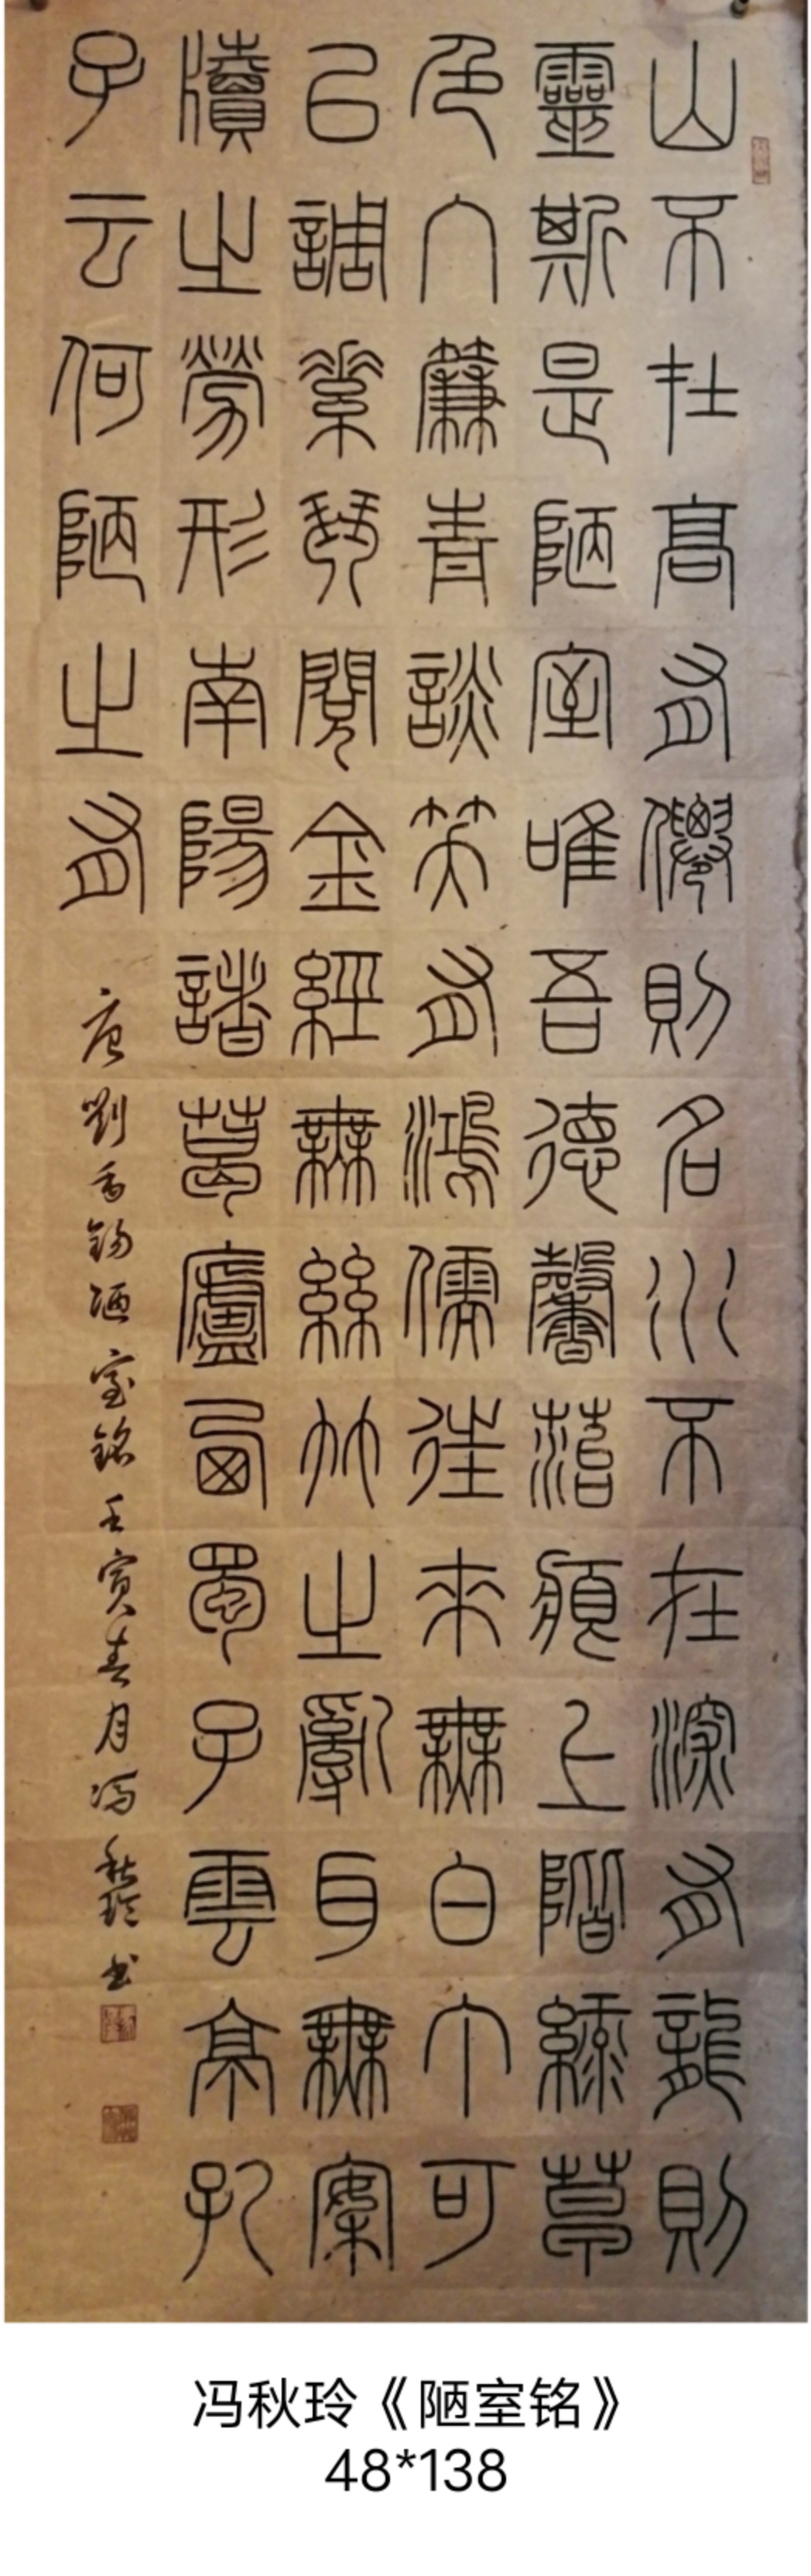 山不在高有僊則名水不在深有龍則
靈斯是陋室唯吾德馨苔痕上階綠草
色入簾青談笑有鴻儒往來無白丁可
以調素琴閱金經無絲竹之亂耳無案
牘之勞形南陽諸葛廬西蜀子雲亭孔
子云何陋之有
唐劉禹錫陋室銘壬寅春月冯秋玲书
冯秋玲《陋室铭》
48*138